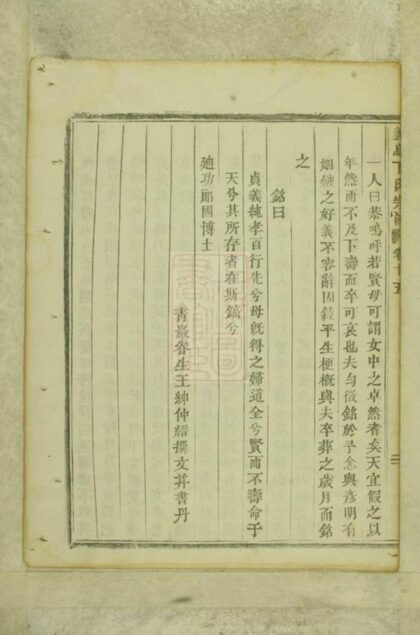 一人曰恭嗚呼若賢母可謂女中之卓然者矣天宜假之以
年然而不及下壽而卒可哀也夫勻徵銘於予念與彥明有
姻婭之好義不容辭因敘平生梗概與夫卒葬之歲月而銘
之
銘曰
貞義純孝百行先兮母旣得之婦道全兮賢而不壽命于
天兮其所存者在斯鐫兮
廸功郎國博士
青巖眷生王紳仲縉撰文幷書丹